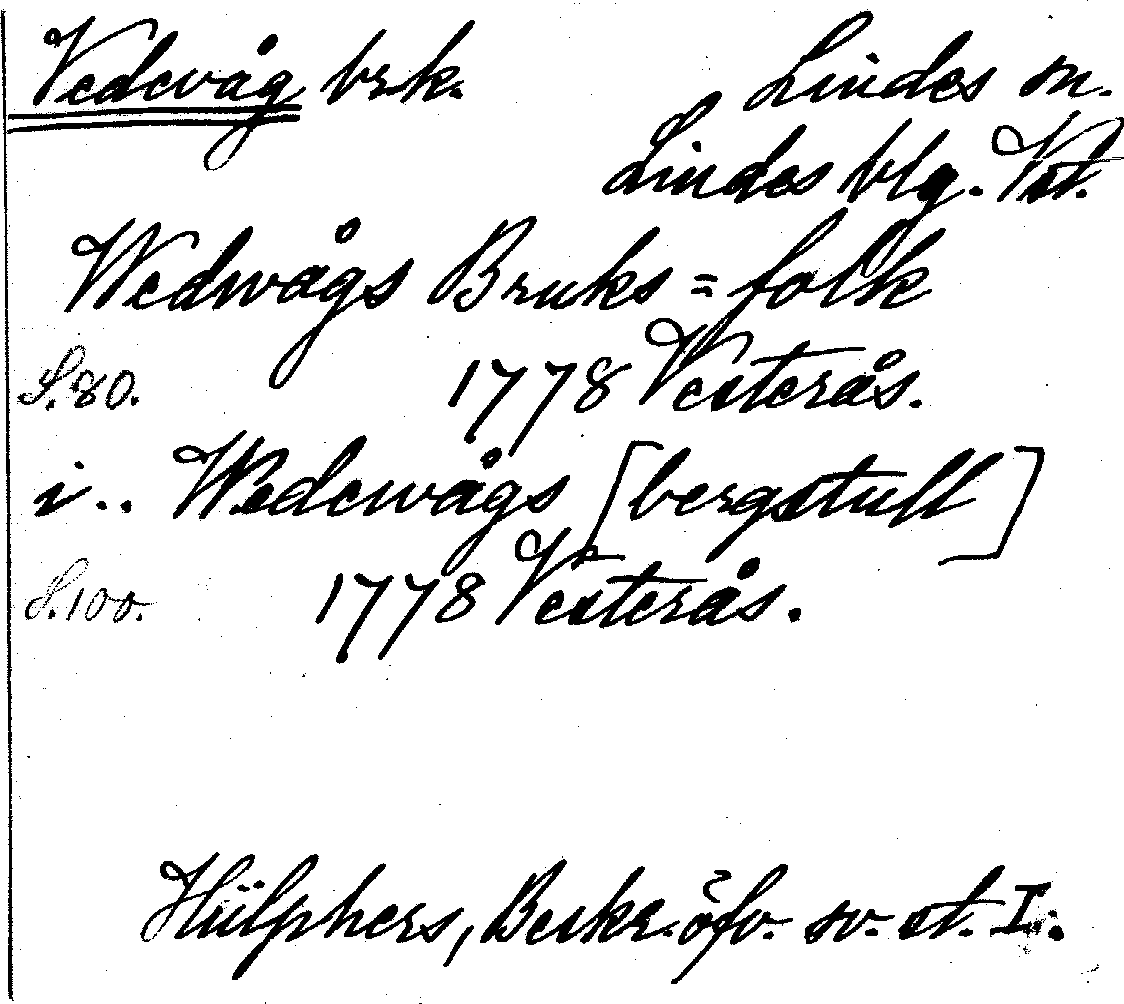 Vedevåg brk. Lindes sn.
Lindes blg. Vst.
Wedwågs Bruks=folk
S.80. 1778 Vesterås.
i.. Wedewågs [bergstull]
S.100. 1778 Vesterås.
Hülphers, Beskr. öfv. sv. st. I.